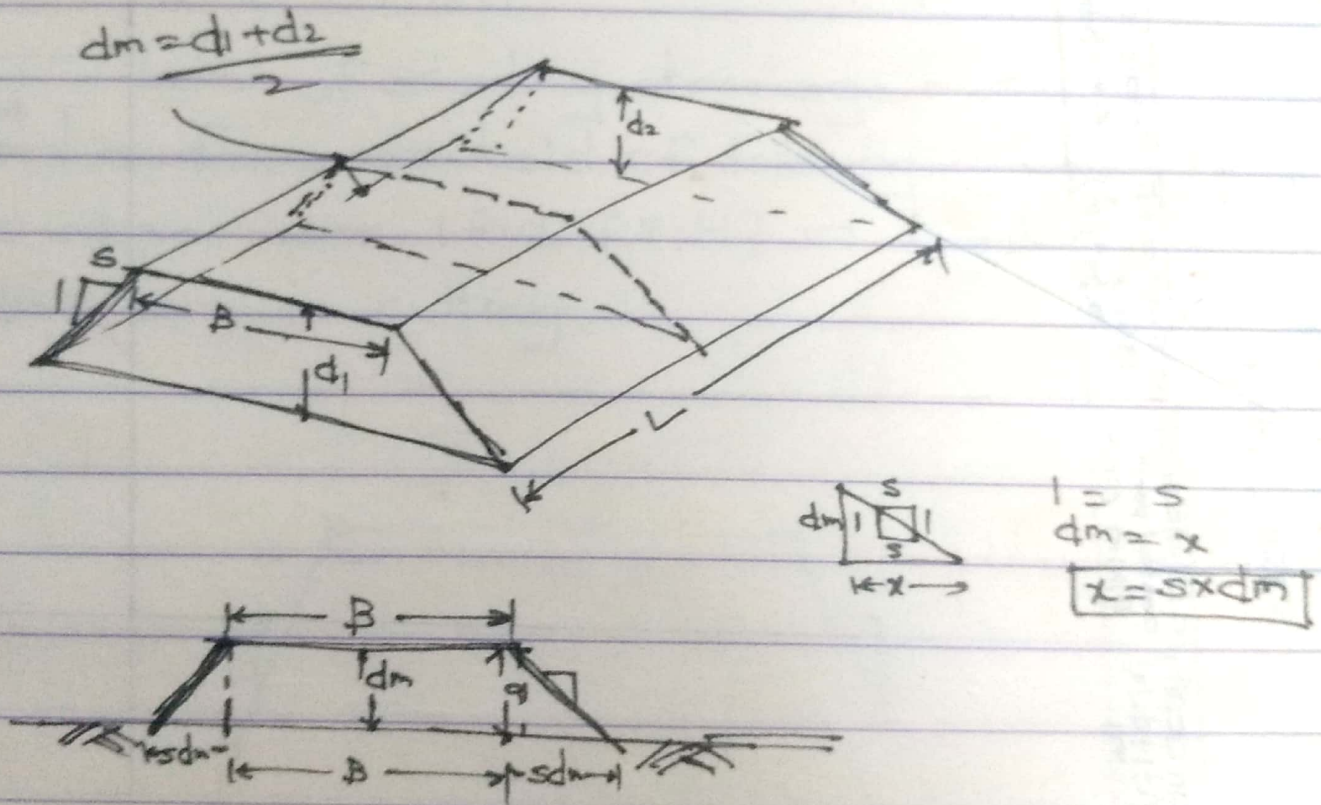 dm = d1 + d2
2
d2
S
1
B
d1
L
S
dm 1 1
S
x
1 = S
dm = x
x = s x dm
B
dm
d
sdm
B
sdm